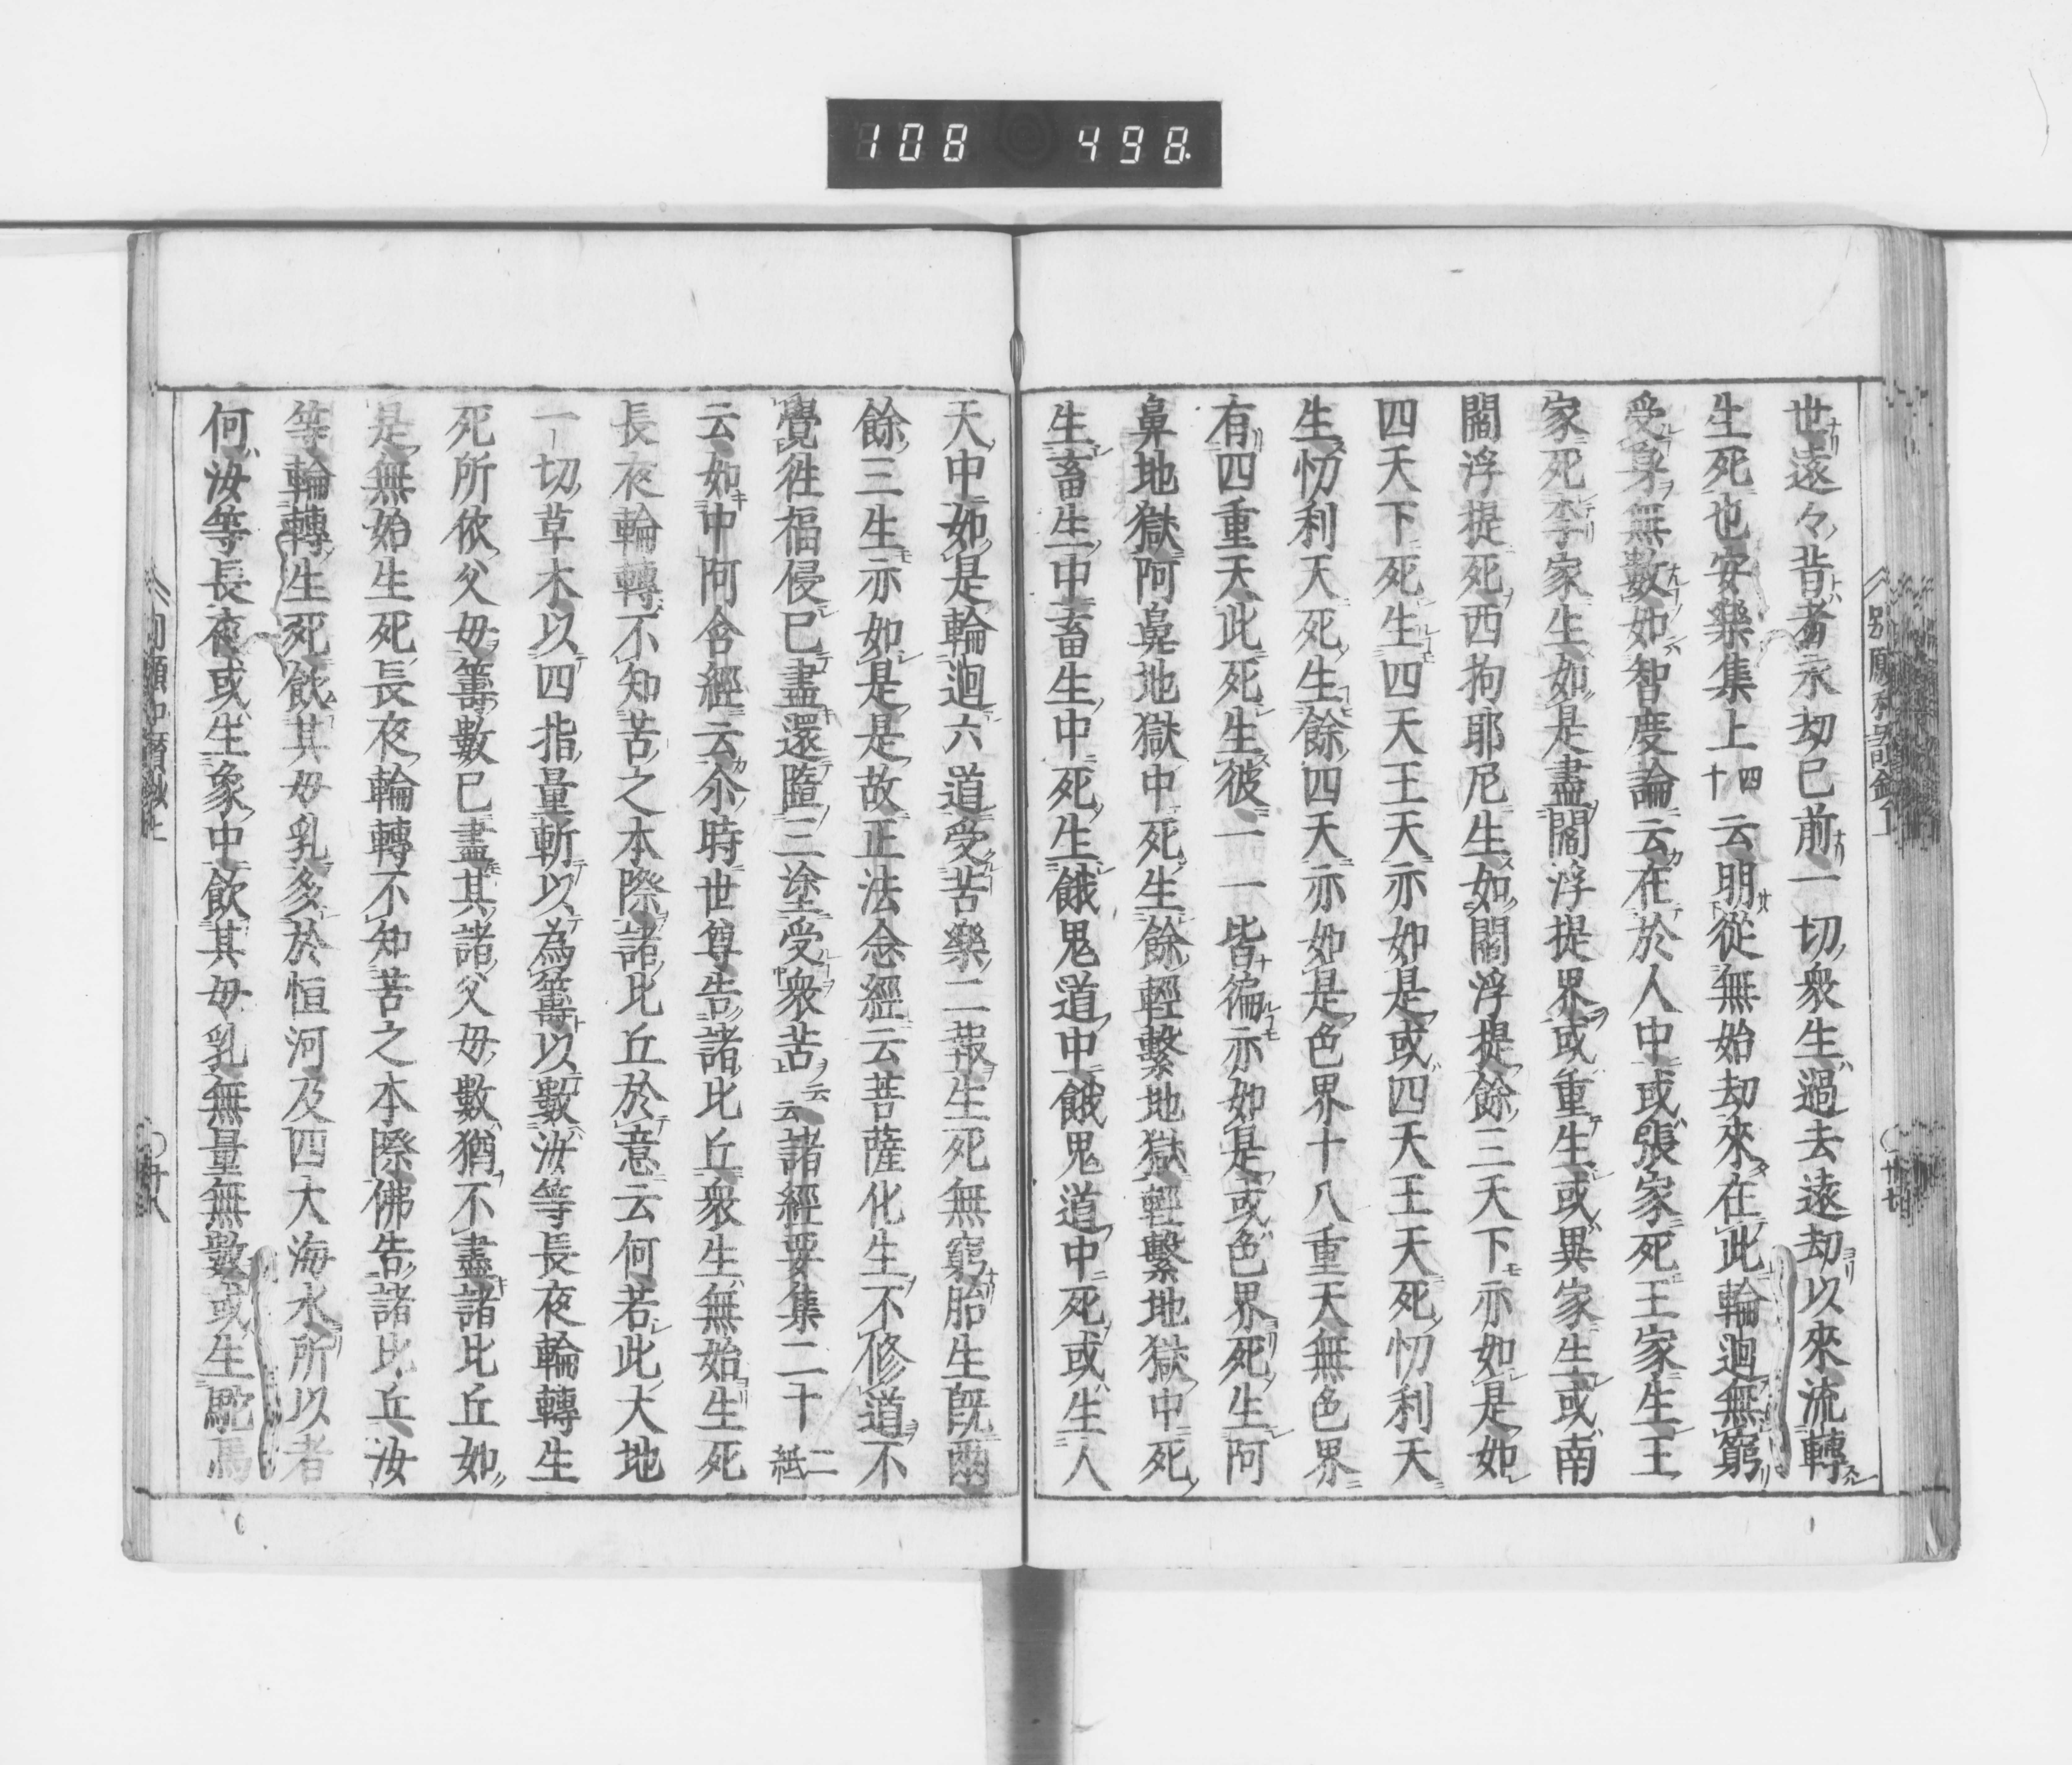 108 498
世遠々昔者永刧已前一切衆生過去遠刧以來流轉
生死也安樂集上四十云明從無始刧來在此輪迴無窮
受身無數如智度論云在於人中或張家死王家生王
家死李家生如是盡閻浮提界或重生或異家生或南
閻浮提死西拘耶尼生如閻浮提餘三天下亦如是如
四天下死生四天王天亦如是或四天王天死忉利天
生忉利天死生餘四天亦如是色界十八重天無色界
有四重天此死生彼一一皆徧亦如是或色界死生阿
鼻地獄阿鼻地獄中死生餘輕繫地獄輕繫地獄中死
生畜生中畜生中死生餓鬼道中餓鬼道中死或生人
天中如是輪迴六道受苦樂二報生死無窮胎生旣爾
餘三生亦如是是故正法念經云菩薩化生不修道不
覺徃福侵已盡還墮三塗受衆苦云云諸經要集二十二紙
云如中阿含經云尒時世尊告諸比丘衆生無始生死
長夜輪轉不知苦之本際諸比丘於意云何若此大地
一切草木以四指量斬以為籌以數汝等長夜輪轉生
死所依父母籌數已盡其諸父母數猶不盡諸比丘如
是無始生死長夜輪轉不知苦之本際佛告諸比丘汝
等輪轉生死飲其母乳多於恒河及四大海水所以者
何汝等長夜或生象中飲其母乳無量無數或生駝馬